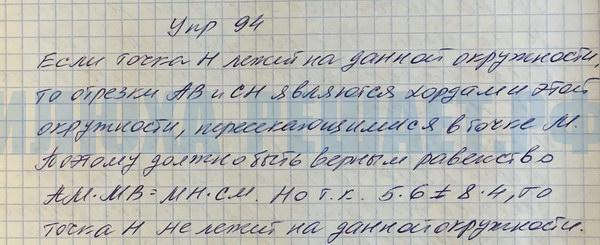 Упр 94
Если точка H лежит на данной окружности,
то отрезки AB и CH являются хордами этой
окружности, пересекающимися в точке M.
Поэтому должно быть верным равенство
AM·MB=MH·CM. Но т.к. 5·6≠8·4, то
точка H не лежит на данной окружности.